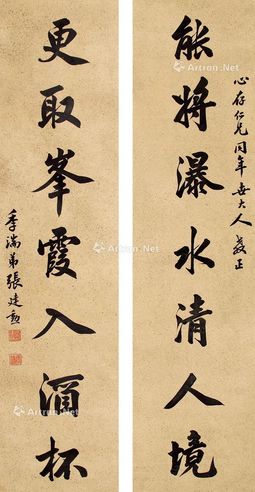 心存仁兄同年世大人教正
能将瀑水清人境
更取峯霞入酒杯
季端弟張建勳
Artron.Net
Artron.Net
Artron.Net
Artron.Net
Artron.Net